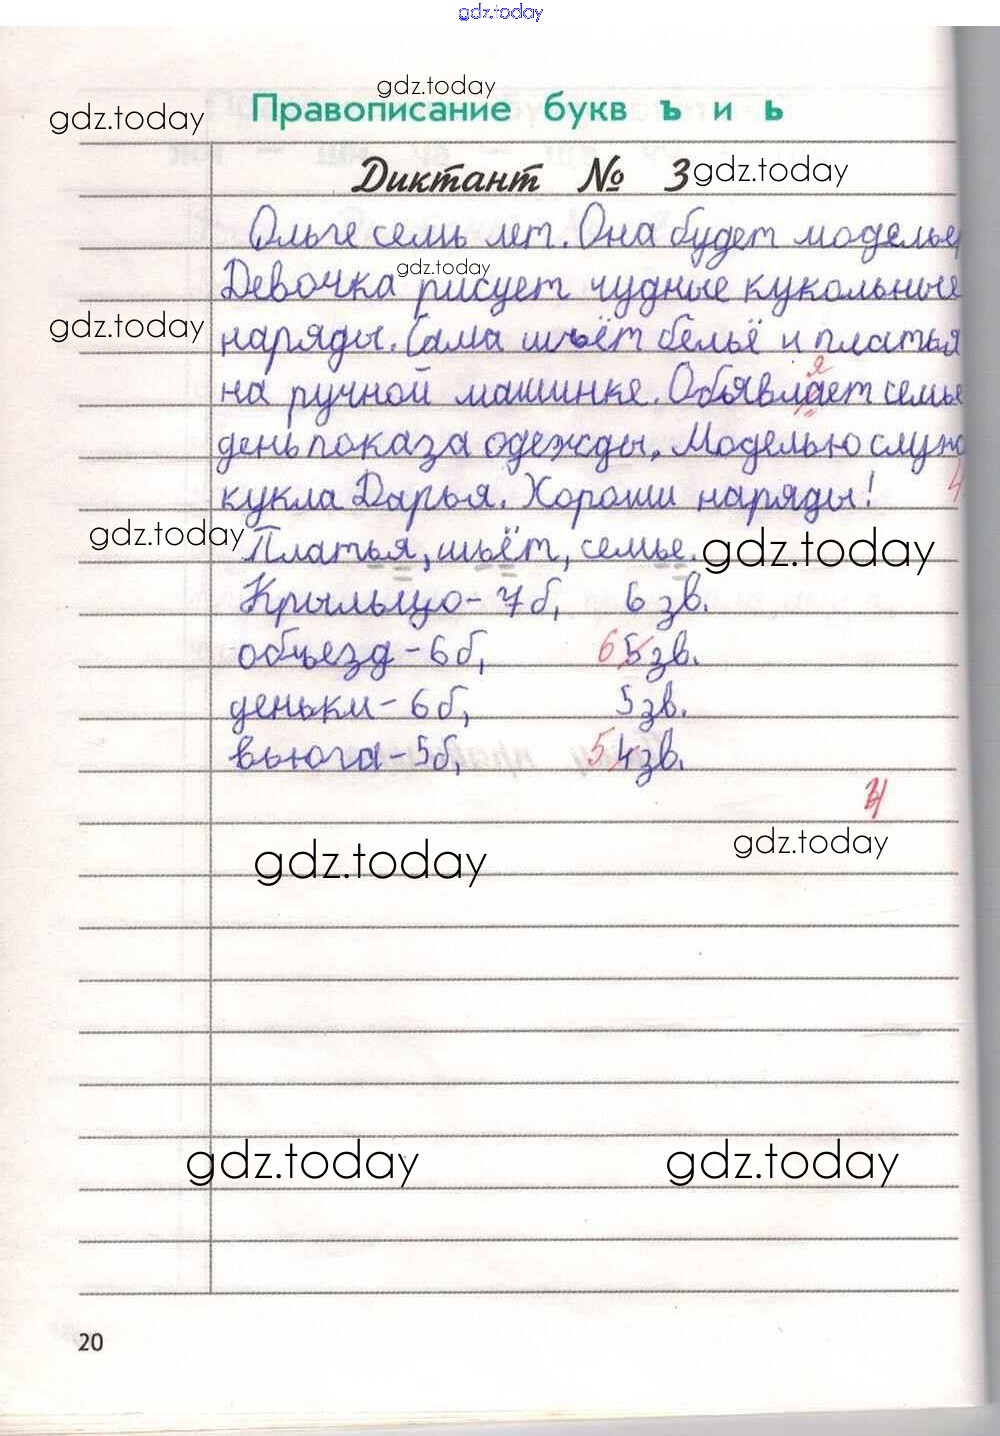 gdz.today
gdz.today
gdz.today
Правописание букв ъ и ь
Диктант № 3
gdz.today
Ольге семь лет. Она будет модельер
gdz.today
Девочка рисует чудные кукольные
gdz.today
наряды. Сама шьёт бельё и платья
я
на ручной машинке. Объявлает семье
день показа одежды. Моделью служ
4
кукла Дарья. Хороши наряды!
gdz.today
Платья, шьёт, семье.
gdz.today
Крыльцо - 7 б, 6 зв.
объезд - 6 б, 6 5 зв.
деньки - 6 б, 5 зв.
вьюга - 5 б, 5 4 зв.
4
gdz.today
gdz.today
gdz.today
gdz.today
20